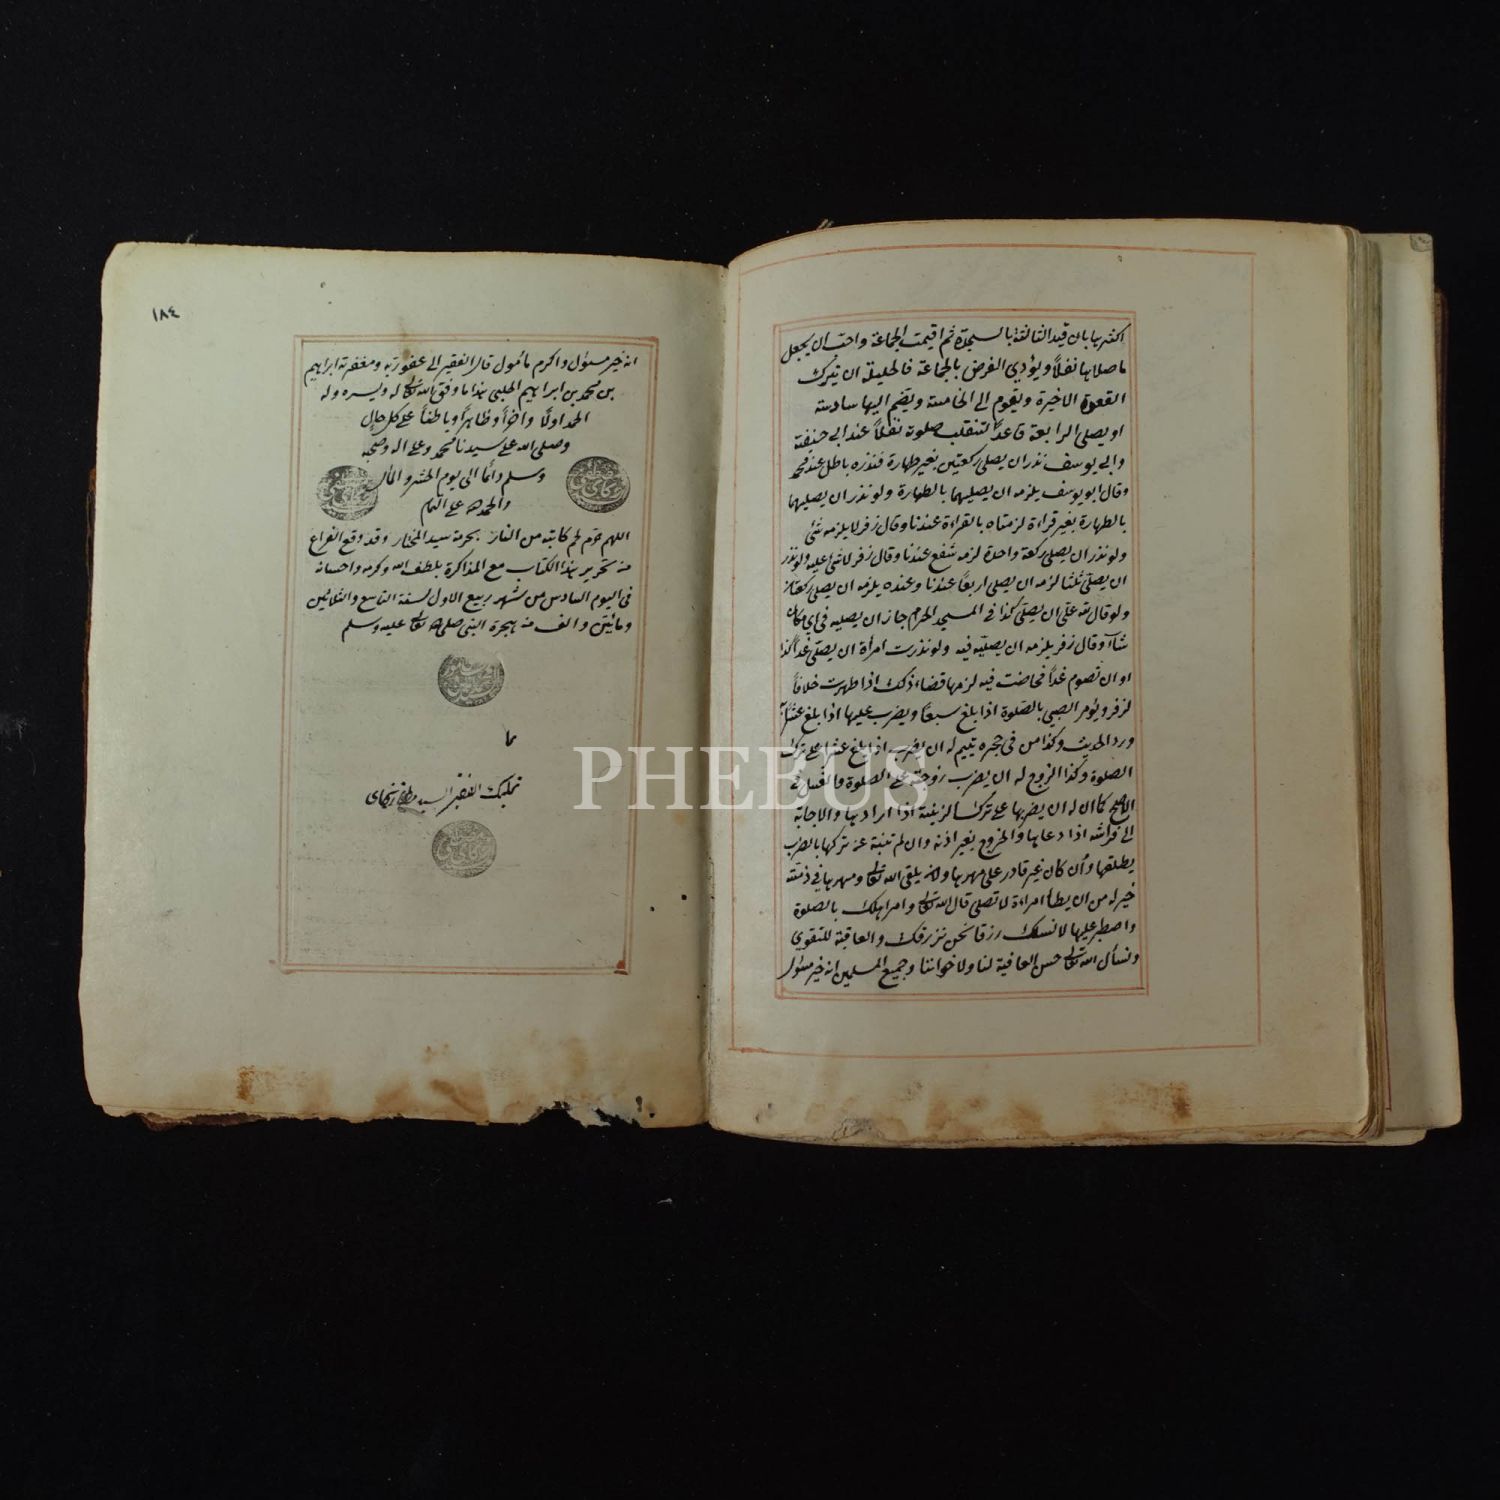 اكثرها بان قيد الثالثة بالسجدة ثم اقيمت الجماعة واحتال يجعل
ما صلاها نفلاً ويؤدي الفرض بالجماعة فالحيلة ان يترك
القعدة الاخيرة ويقوم الى الخامسة ويضم اليها سادسة
او يصلى الرابعة قاعداً لتنقلب صلوة نفلاً عند ابى حنيفة
وابي يوسف نذر ان يصلى ركعتين بغير طهارة فنذره باطل عند محمد
وقال ابو يوسف يلزمه ان يصليهما بالطهارة ولو نذر ان يصليهما
بالطهارة بغير قراءة لزمتاه بالقراءة عندنا وقال زفر لا يلزمه شئ
ولو نذر ان يصلى ركعة واحدة لزمه شفع عندنا وقال زفر لا شئ عليه ولو نذر
ان يصلى ثلثا لزمه ان يصلى اربعاً عندنا وعنده يلزمه ان يصلى ركعتان
ولو قال لله على ان يصلى كذا فى المسجد الحرام جاز ان يصليه فى اى مكان
شاء وقال زفر يلزمه ان يصليه فيه ولو نذرت امرأة ان يصلى غداً كذا
او ان تصوم غداً فحاضت فيه لزمها قضاء ذلك اذا طهرت خلافاً
لزفر ويؤمر الصبي بالصلوة اذا بلغ سبعاً ويضرب عليها اذا بلغ عشراً
ورد الحديث وكذا من فى حجره يتيم له ان يضرب اذا بلغ عشرا على ترك
الصلوة وكذا الزوج له ان يضرب زوجته على الصلوة والغسل فى
الاصح كما ان له ان يضربها على ترك الزينة اذا ارادها والاجابة
الى فراشه اذا دعاها والخروج بغير اذنه وان لم تنته عن تركها بالضرب
يطلقها وأن كان غير قادر على مهرها ولان يلقى الله تعالى ومهرها في ذمته
خير له من ان يطأ امراءة لا تصلى قال الله تعالى وامر اهلك بالصلوة
واصطبر عليها لا نسئلك رزقا نحن نرزقك والعاقبة للتقوى
ونسأل الله تعالى حسن العافية لنا ولاخواننا وجميع المسلمين انه خير مسئول
١٨٤
انه خير مسئول واكرم مأمول قال الفقير الى عفو ربه ومغفرته ابراهيم
بن محمد بن ابراهيم الحلبى هذا ما وفق الله تعالى له ويسره وله
الحمد اولًا وآخراً وظاهراً وباطناً على كل حال
وصلى الله على سيدنا محمد وعلى اله وصحبه
وسلم دائما الى يوم الحشر والمأل
والحمد لله على التمام
اللهم حرم لحم كاتبه من النار بحرمة سيد المختار وقد وقع الفراغ
من تحرير هذا الكتاب مع المذاكرة بلطف الله وكرمه واحسانه
فى اليوم السادس من شهر ربيع الاول لسنة التاسع والثلاثين
ومائتين والف من هجرة النبى صلى الله تعالى عليه وسلم
مما
تملك الفقير السيد
PHEBUS